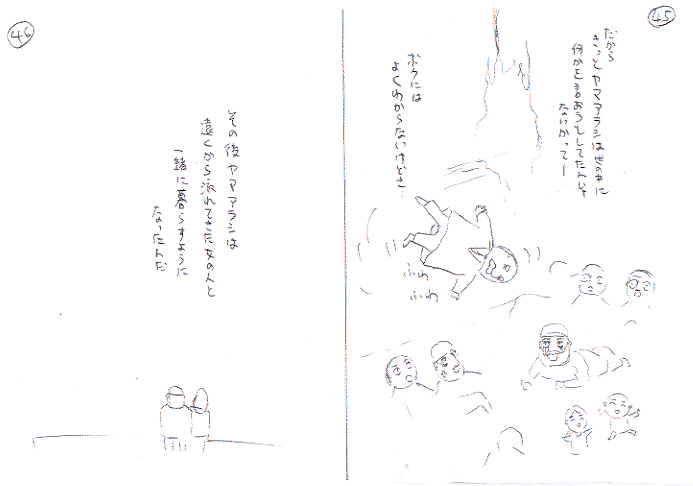 45
だから
きっとヤマアラシは世の中に
何かを言おうとしてたんじゃ
ないかって—
ボクには
よくわからないけどさ…
ふわ
ふわ
46
その後ヤマアラシは
遠くから流れてきた女の人と
一緒に暮らすように
なったんだ